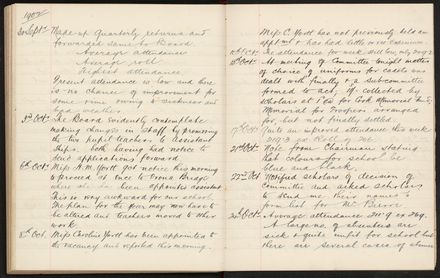 1902
30 Sept. Made up Quarterly returns and
forwarded same to Board
Average attendance
Average roll
Highest attendance
Present attendance is low and there
is no chance of improvement for
some time owing to sickness and
bad weather.
3rd Oct. The Board evidently contemplate
making changes in staff by promoting
the two pupil teachers to assistant
ships both having had notice to
send applications forward
6th Oct. Miss A.M. Yorth got notice this morning
to proceed at once to
where she has been appointed assistant
This is very awkward for our school
The plan for the year may now have to
be altered and teachers moved to other
work
8th Oct. Miss Caroline Yorth has been appointed to
the vacancy and reported this morning.
Miss C. Yorth has not previously held an
appt and has had little or no experience
The attendance for week still low only
At meeting of Committee tonight matter
of choice of uniforms for cadets was
dealt with finally & a sub committee
formed to act, if collected by
scholars at for Cook Memorial but
Memorial for Troopers arranged
for, but not finally settled.
17th Oct Quite an improved attendance this week
and Roll of
21st Oct Note from Chairman stating
that colours for school be
blue and black.
22nd Oct Notified scholars of decision of
Committee and asked scholars
to send me their names to
form list for
24th Oct. Average attendance ex
A large no of absentees are
sick & quite unfit for school but
there are several cases of